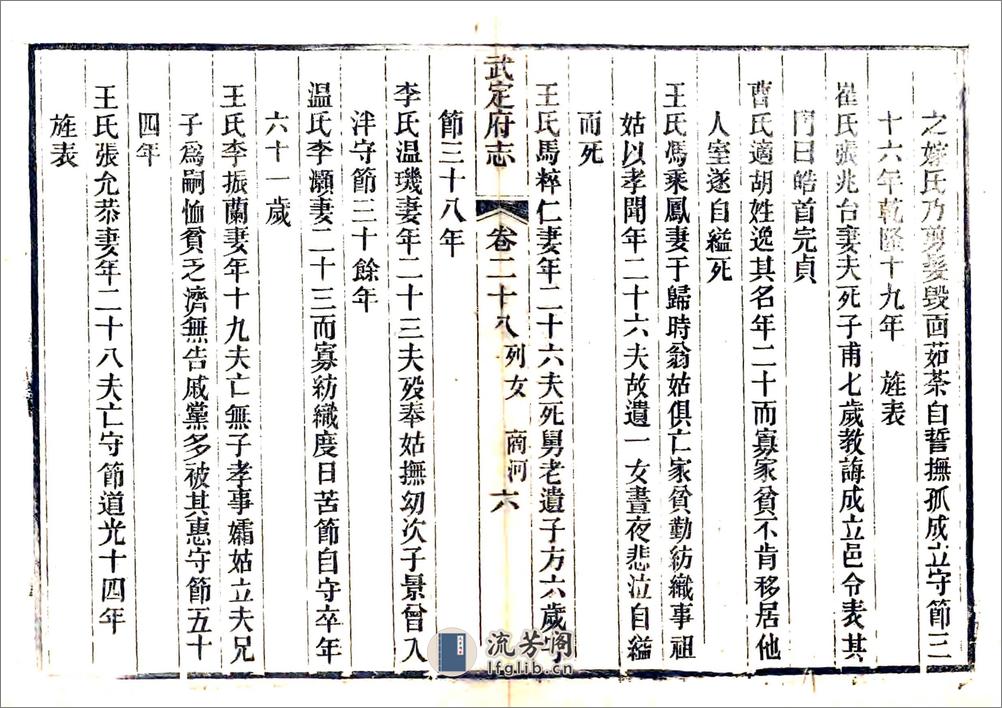 之嫁氏乃剪髮毀面茹荼自誓撫孤成立守節三
十六年乾隆十九年　旌表
崔氏張兆台妻夫死子甫七歲教誨成立邑令表其
門曰皓首完貞
曹氏適胡姓逸其名年二十而寡家貧不肯移居他
人室遂自縊死
王氏馮乘鳳妻于歸時翁姑俱亡家貧勤紡織事祖
姑以孝聞年二十六夫故遺一女晝夜悲泣自縊
而死
王氏馬粹仁妻年二十六夫死舅老遺子方六歲
節三十八年
武定府志　卷二十八　列女　商河　六
李氏溫璣妻年二十三夫歿奉姑撫幼次子景曾入
泮守節三十餘年
溫氏李灝妻二十三而寡紡織度日苦節自守卒年
六十一歲
王氏李振蘭妻年十九夫亡無子孝事孀姑立夫兄
子爲嗣恤貧乏濟無告戚黨多被其惠守節五十
四年
王氏張允恭妻年二十八夫亡守節道光十四年
旌表
流芳阁
lfglib.cn